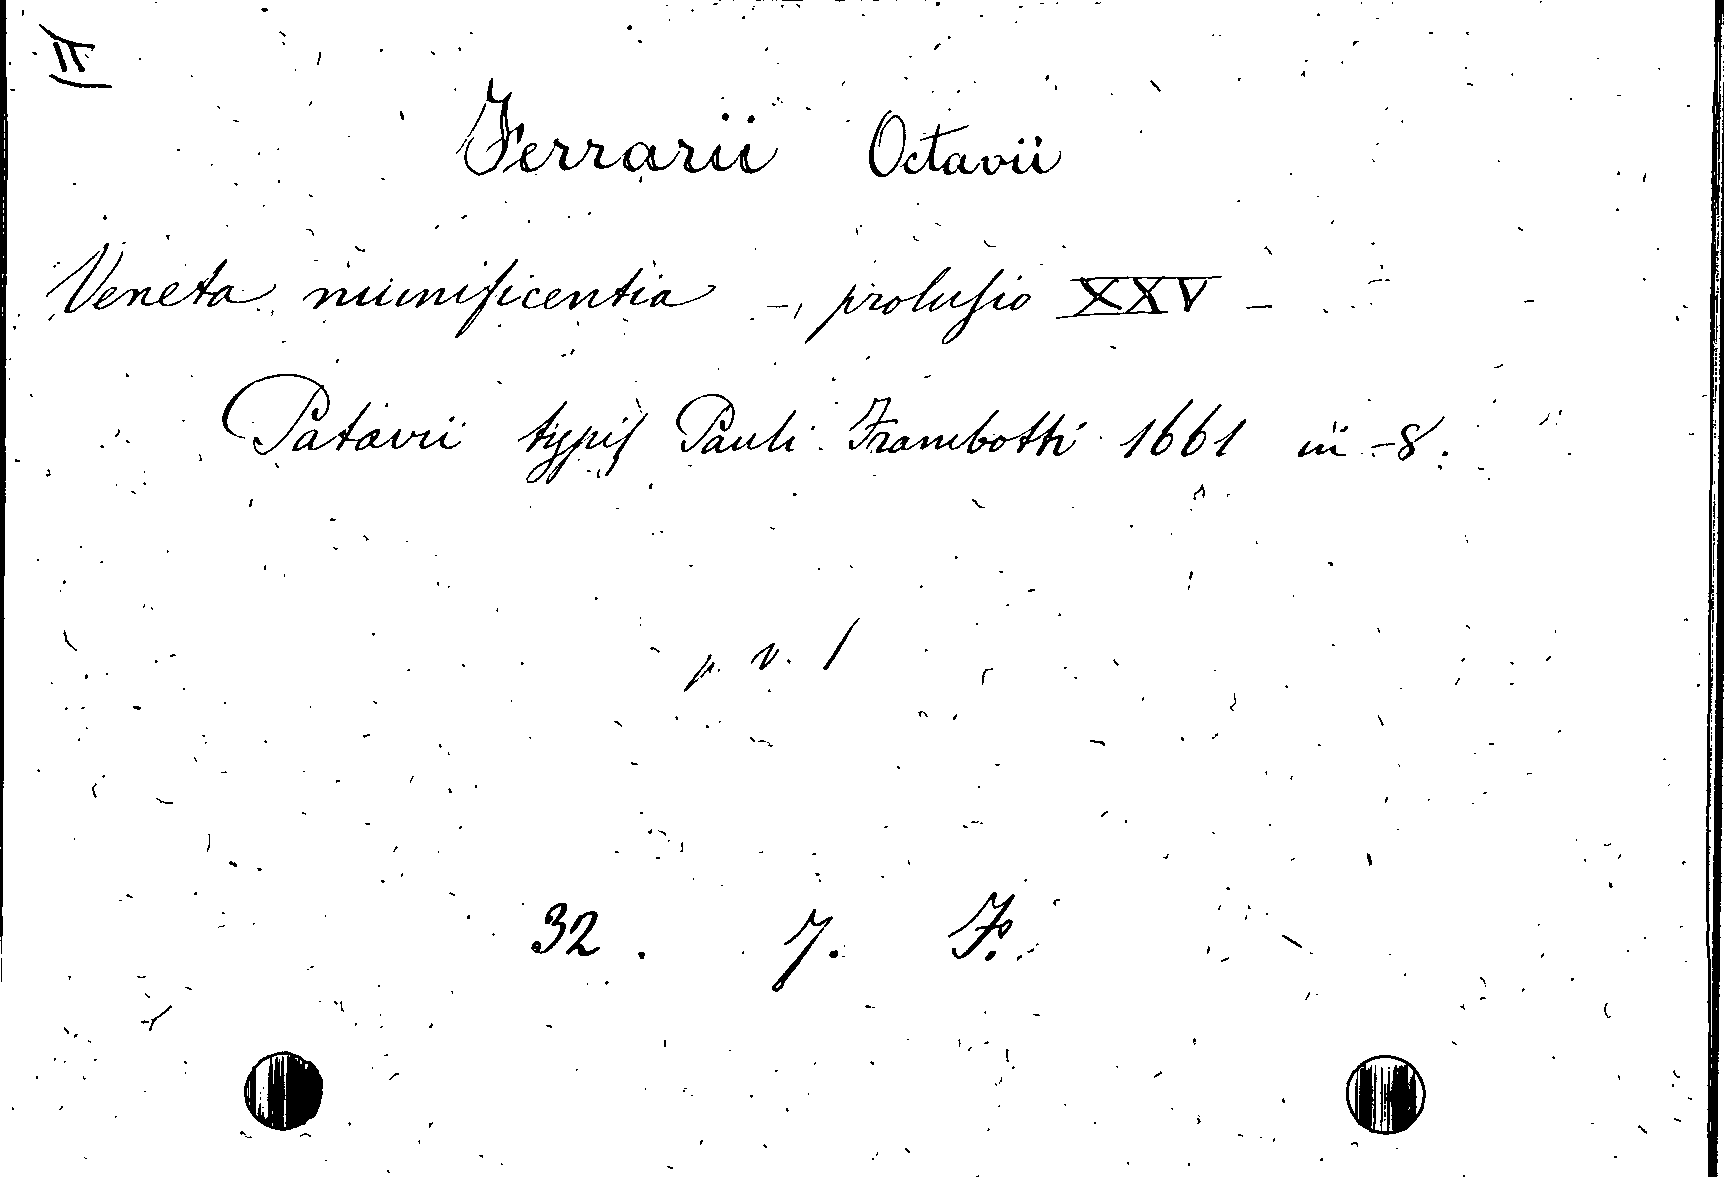 II
Ferrarii Octavii
Veneta munificentia -, prolusio XXV -
Patavii typis Pauli Frambotti 1661 in -8.
p. v. 1
32. 7. F.